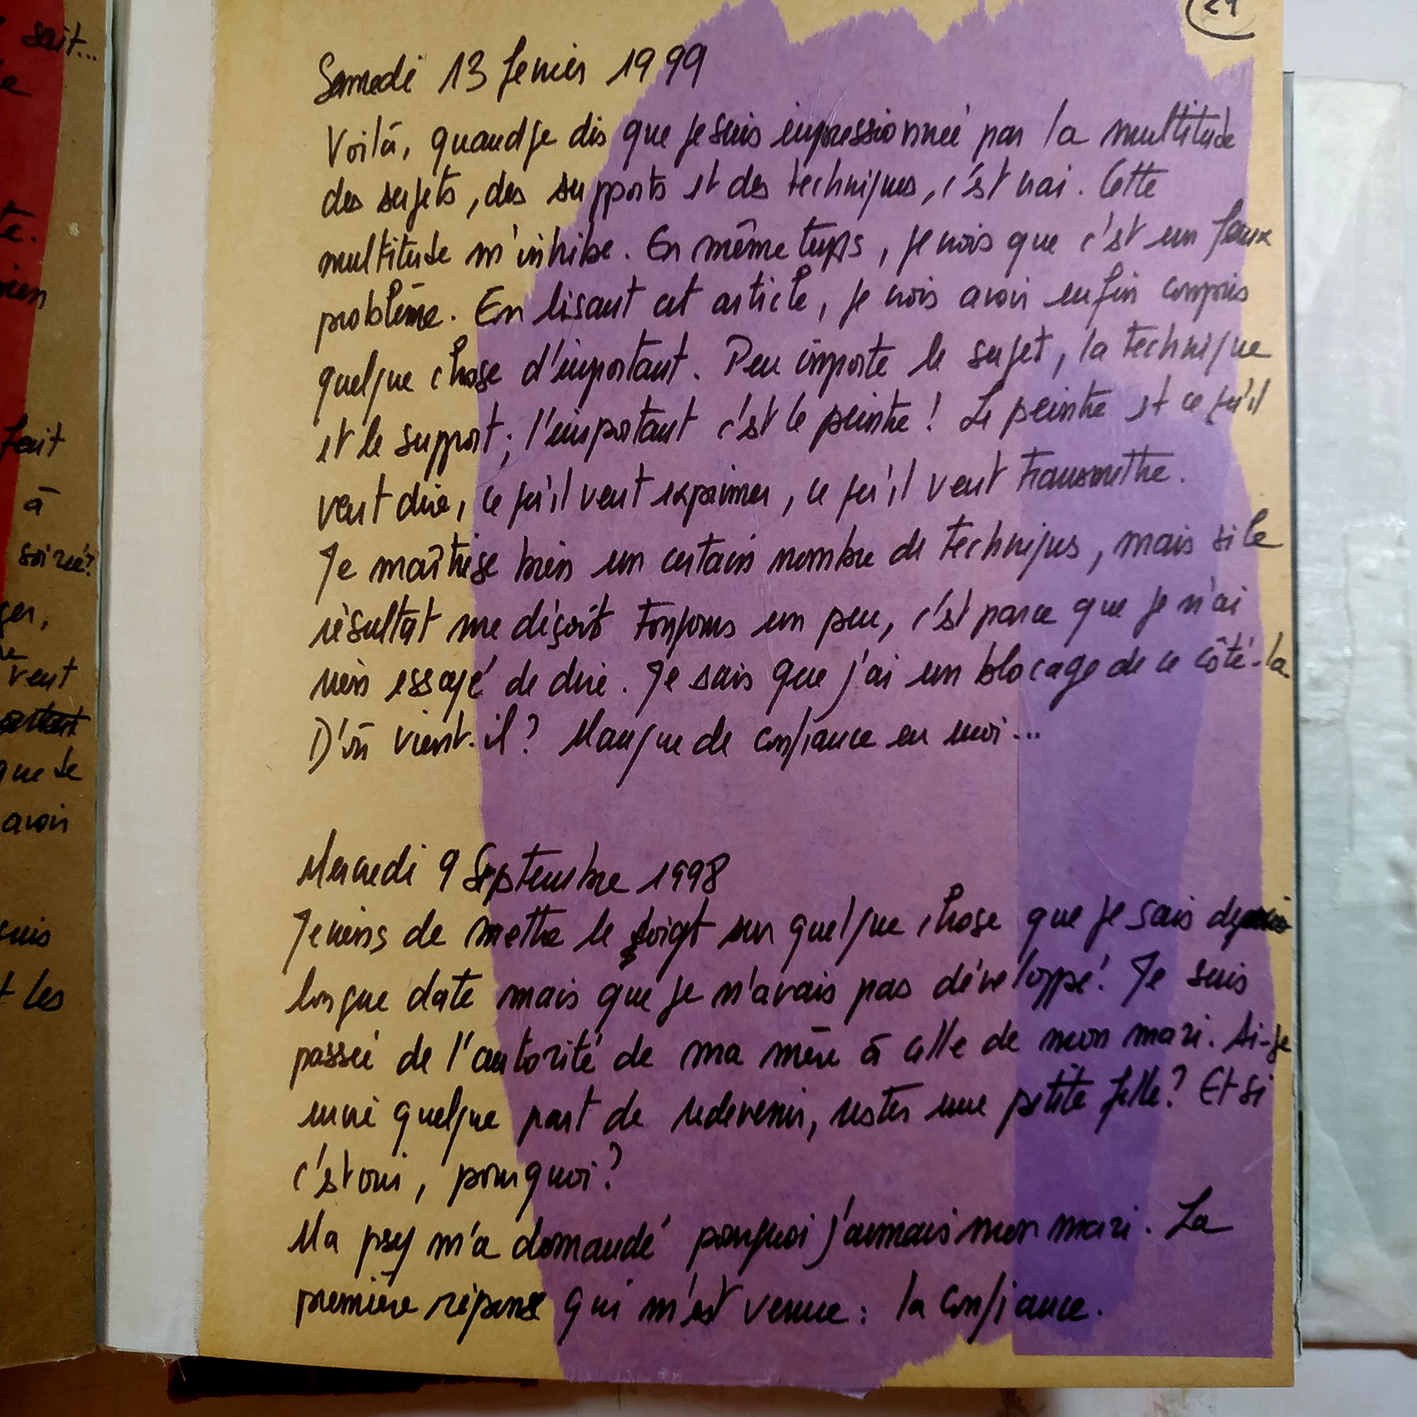 sait...
te.
fait
à
soirée?
veut
que de
avoir
suis
t les
24
Samedi 13 fevrier 1999
Voilà, quand je dis que je suis impressionnée par la multitude
des sujets, des supports et des techniques, c'est vrai. Cette
multitude m'inhibe. En même temps, je crois que c'est un faux
problème. En lisant cet article, je crois avoir enfin compris
quelque chose d'important. Peu importe le sujet, la technique
et le support ; l'important c'est le peintre ! Le peintre et ce qu'il
veut dire, ce qu'il veut exprimer, ce qu'il veut transmettre.
Je maîtrise bien un certain nombre de techniques, mais si le
résultat me déçoit toujours un peu, c'est parce que je n'ai
rien essayé de dire. Je sais que j'ai un blocage de ce côté-là
D'où vient-il ? Manque de confiance en moi...
Mercredi 9 Septembre 1998
Je viens de mettre le doigt sur quelque chose que je sais depuis
longue date mais que je n'avais pas développé ! Je suis
passée de l'autorité de ma mère à celle de mon mari. Ai-je
envie quelque part de redevenir, rester une petite fille ? Et si
c'est oui, pourquoi ?
Ma psy m'a demandé pourquoi j'aimais mon mari. La
première réponse qui m'est venue : la confiance.